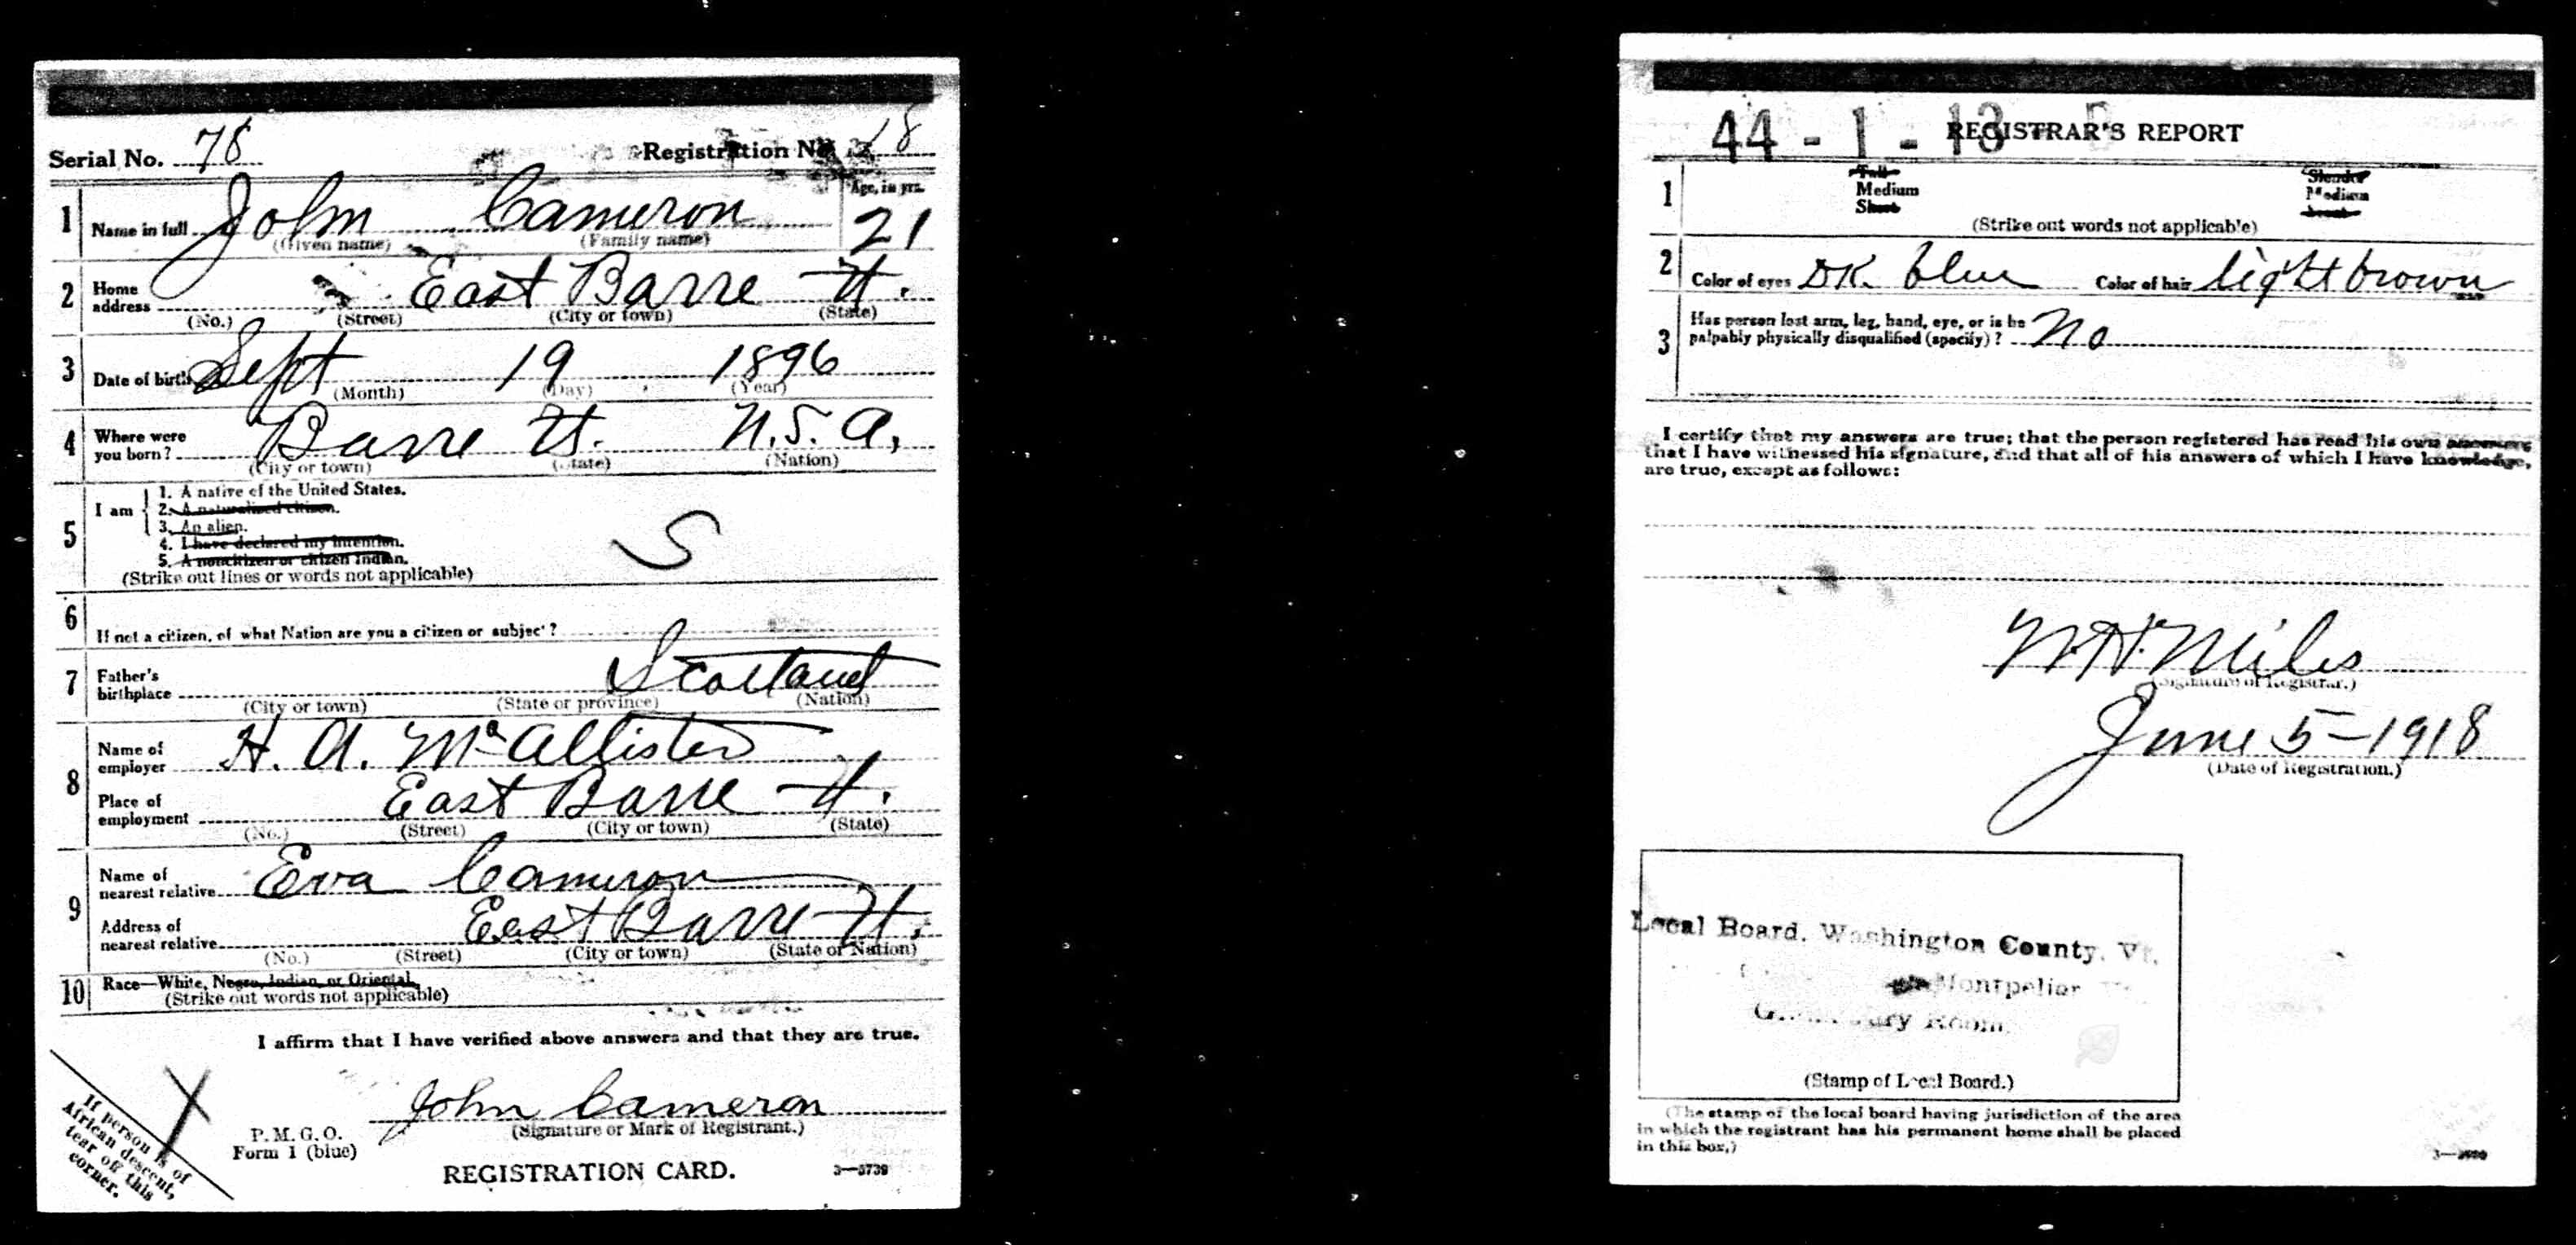 Serial No. 78 Registration No. 18
1 Name in full John Cameron Age, in yrs. 21
(Given name) (Family name)
2 Home address East Barre Vt.
(No.) (Street) (City or town) (State)
3 Date of birth Sept 19 1896
(Month) (Day) (Year)
4 Where were you born? Barre Vt. U.S.A.
(City or town) (State) (Nation)
5 I am
1. A native of the United States.
2. A naturalized citizen.
3. An alien.
4. I have declared my intention.
5. A noncitizen or citizen Indian.
(Strike out lines or words not applicable)
S
6 If not a citizen, of what Nation are you a citizen or subject?
7 Father's birthplace Scotland
(City or town) (State or province) (Nation)
8 Name of employer H. A. McAllister
Place of employment East Barre Vt.
(No.) (Street) (City or town) (State)
9 Name of nearest relative Eva Cameron
Address of nearest relative East Barre Vt.
(No.) (Street) (City or town) (State or Nation)
10 Race—White, Negro, Indian, or Oriental.
(Strike out words not applicable)
I affirm that I have verified above answers and that they are true.
John Cameron
(Signature or Mark of Registrant.)
P. M. G. O.
Form 1 (blue)
REGISTRATION CARD.
3—3739
If person is of
African descent,
tear off this
corner.
44 - 1 - 13
REGISTRAR'S REPORT
1 Tall Slender
Medium Medium
Short Stout
(Strike out words not applicable)
2 Color of eyes DK. blue Color of hair light brown
3 Has person lost arm, leg, hand, eye, or is he
palpably physically disqualified (specify)? No
I certify that my answers are true; that the person registered has read his own answers
that I have witnessed his signature, and that all of his answers of which I have knowledge,
are true, except as follows:
W.H. Miles
(Signature of Registrar.)
June 5-1918
(Date of Registration.)
Local Board, Washington County, Vt.
Montpelier
Room
(Stamp of Local Board.)
(The stamp of the local board having jurisdiction of the area
in which the registrant has his permanent home shall be placed
in this box.)